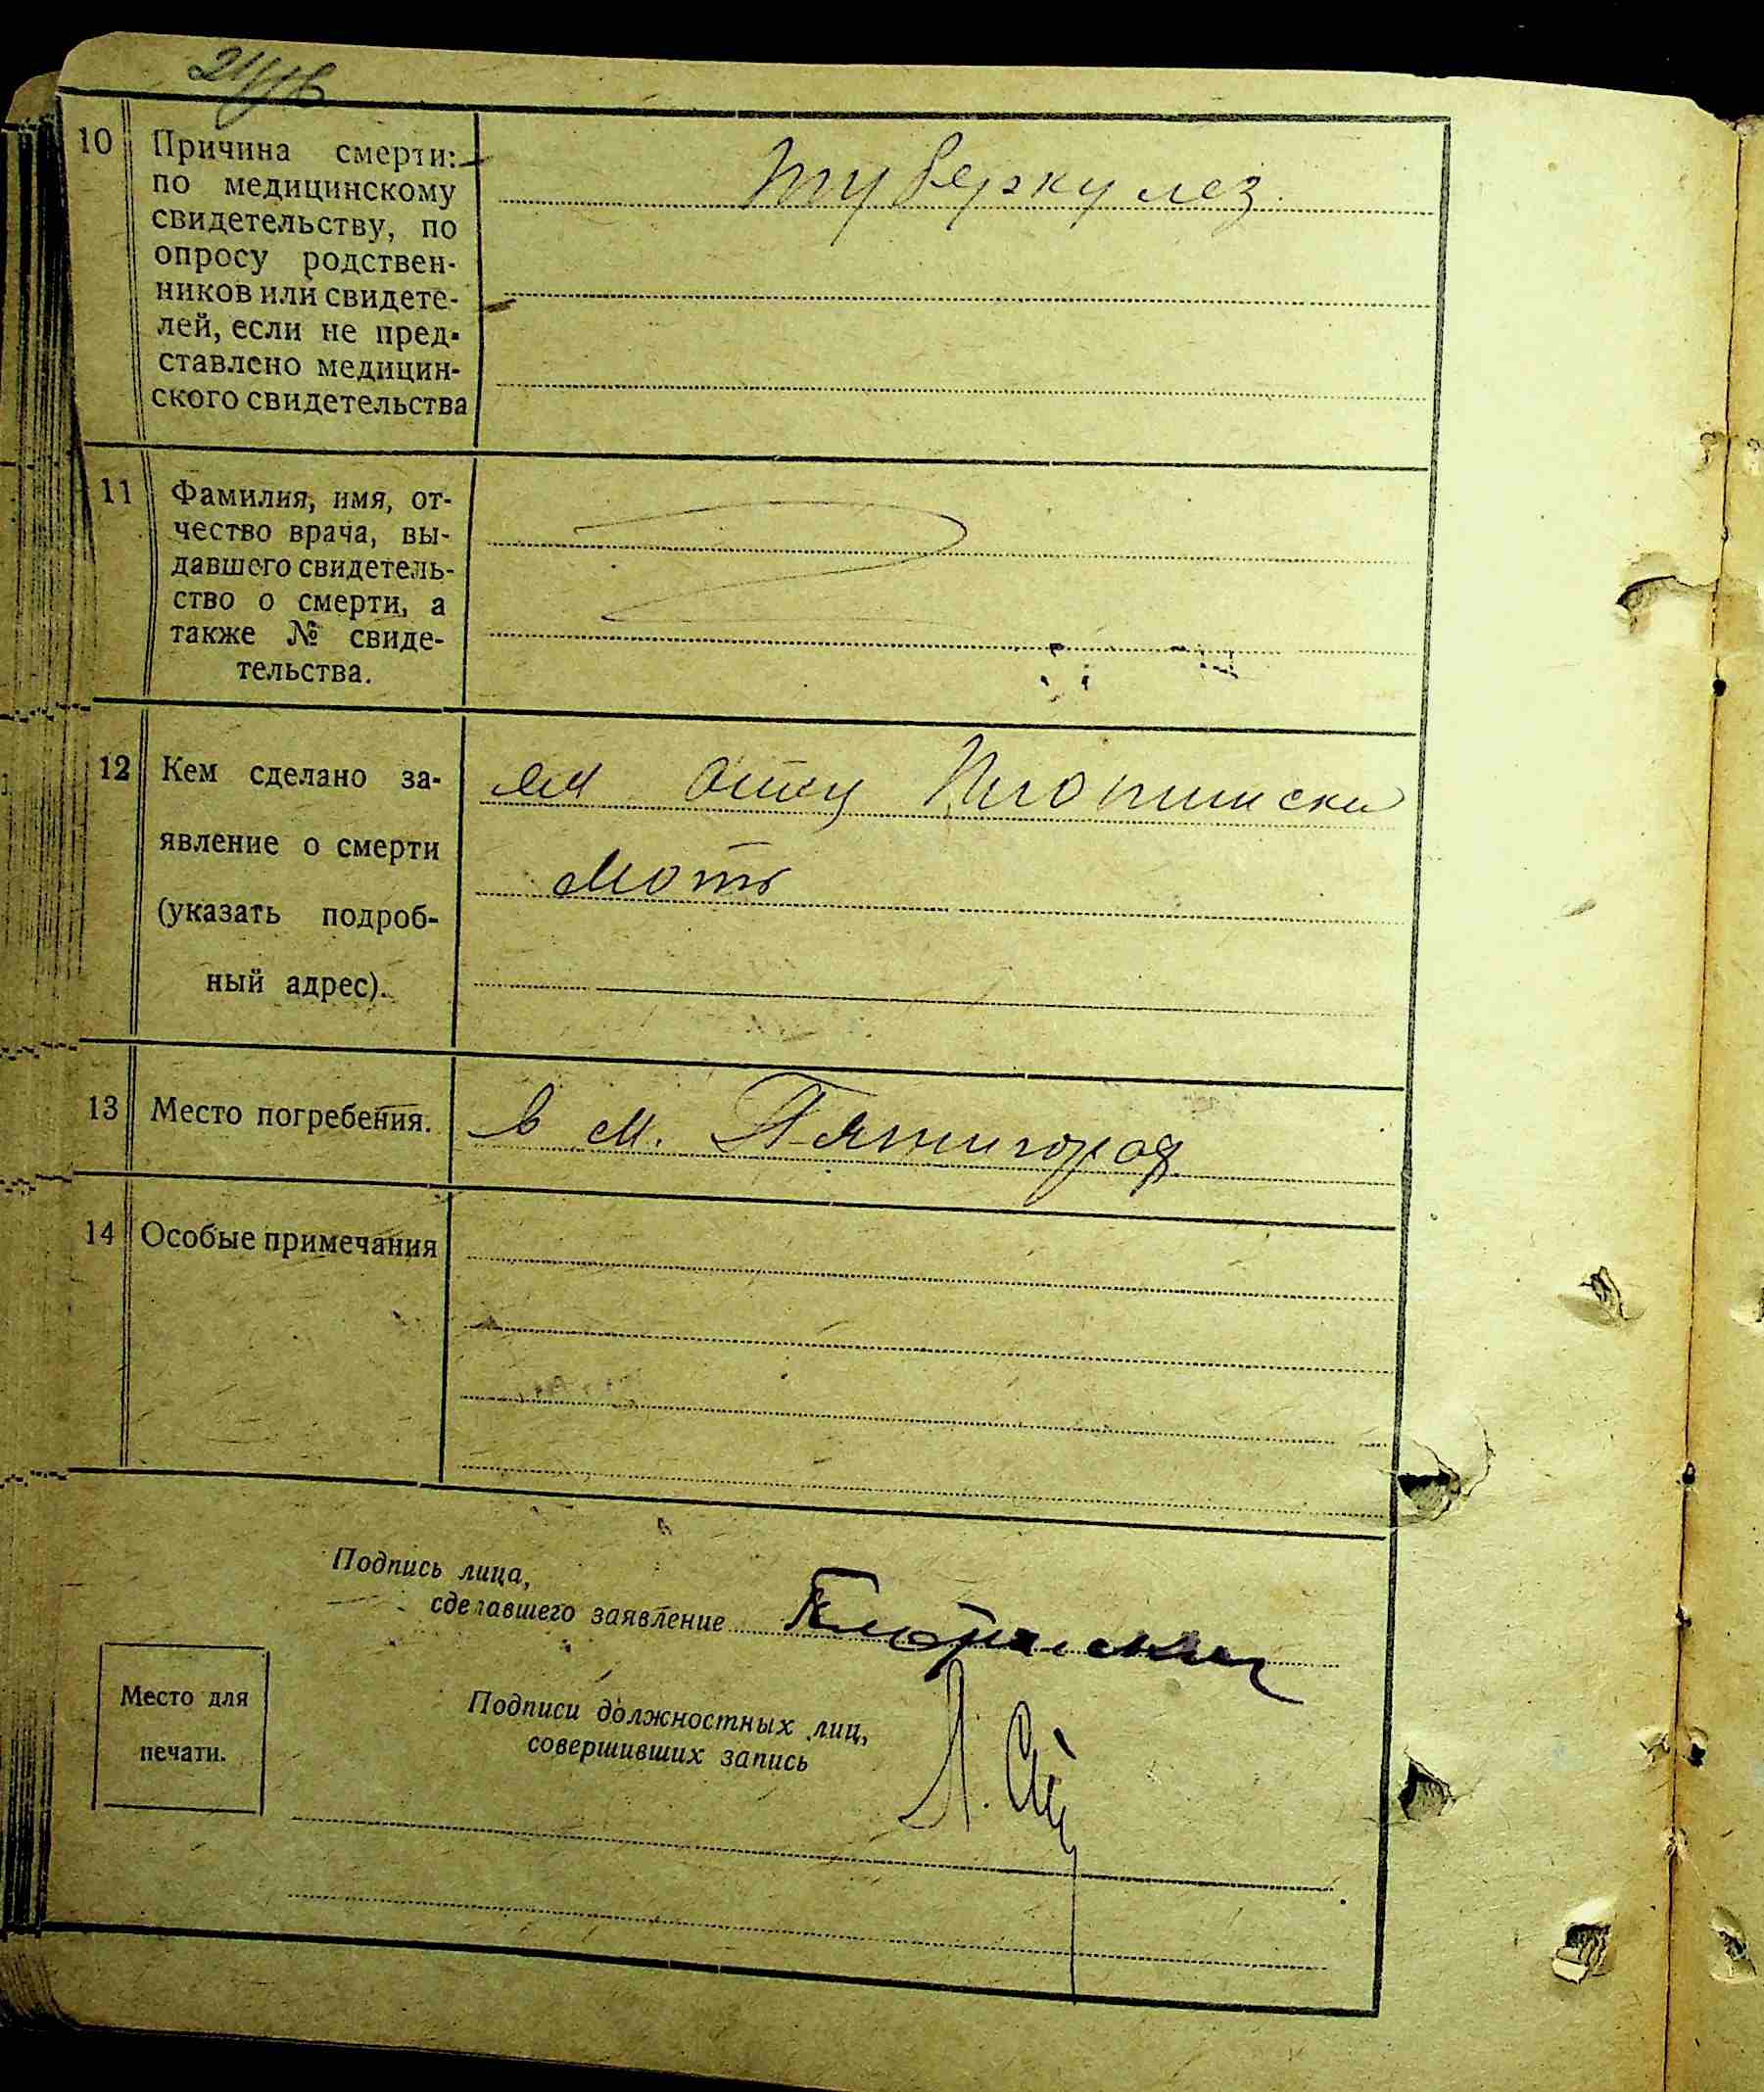 10 Причина смерти: туберкулез.
по медицинскому
свидетельству, по
опросу родствен-
ников или свидете-
лей, если не пред-
ставлено медицин-
ского свидетельства
11 Фамилия, имя, от-
чество врача, вы-
давшего свидетель-
ство о смерти, а
также № свиде-
тельства.
12 Кем сделано за-
явление о смерти
(указать подроб-
ный адрес).
моть
13 Место погребения. в м. Пятигорах
14 Особые примечания
Подпись лица,
сделавшего заявление
Место для
печати.
Подписи должностных лиц,
совершивших запись